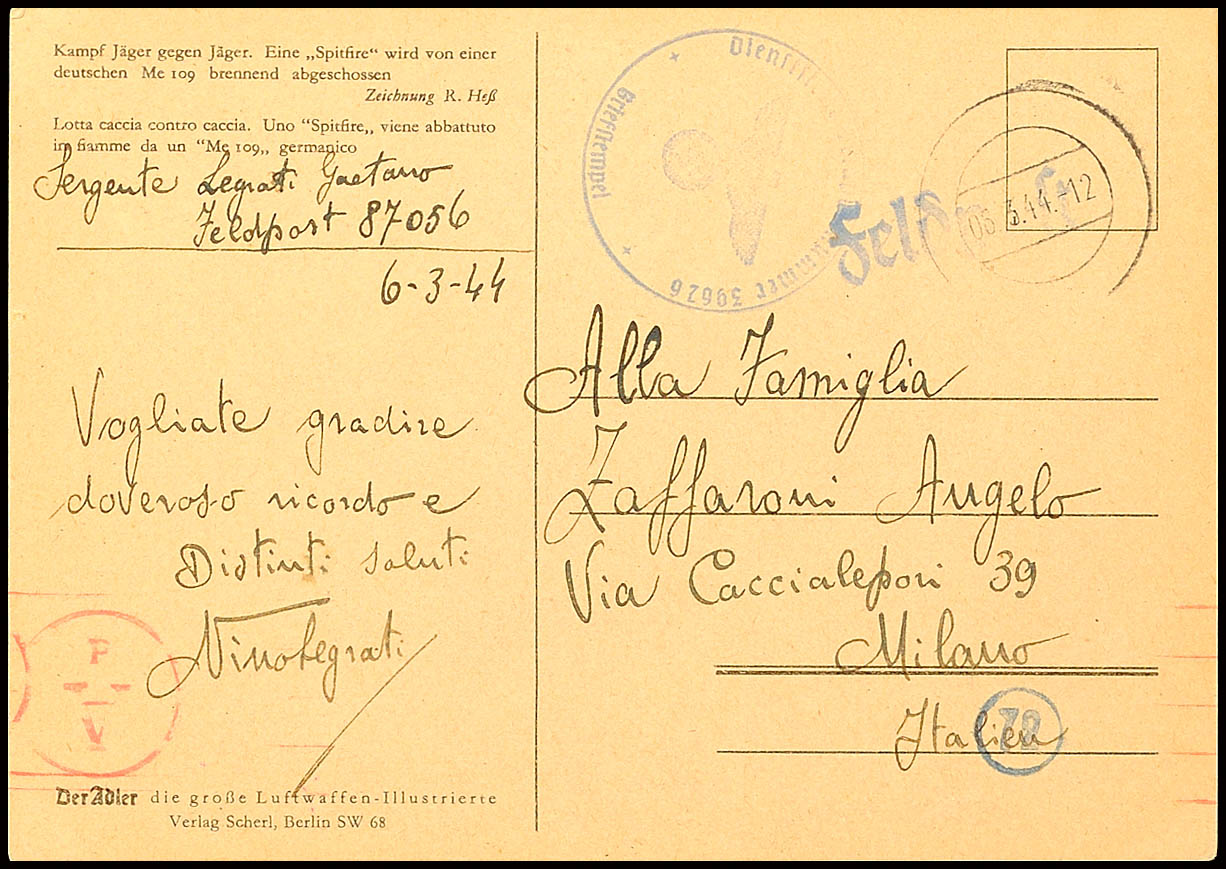 Kampf Jäger gegen Jäger. Eine „Spitfire“ wird von einer
deutschen Me 109 brennend abgeschossen
Zeichnung R. Heß
Lotta caccia contro caccia. Uno “Spitfire„ viene abbattuto
in fiamme da un “Me 109„ germanico
Sergente Legrati Gaetano
Feldpost 87056
6-3-44
Vogliate gradire
doveroso ricordo e
Distinti saluti
Nino Legrati
P
V
Der Adler die große Luftwaffen-Illustrierte
Verlag Scherl, Berlin SW 68
Briefstempel
39626
44.-12
Alla Famiglia
Zaffaroni Angelo
Via Caccialepori 39
Milano
Italien